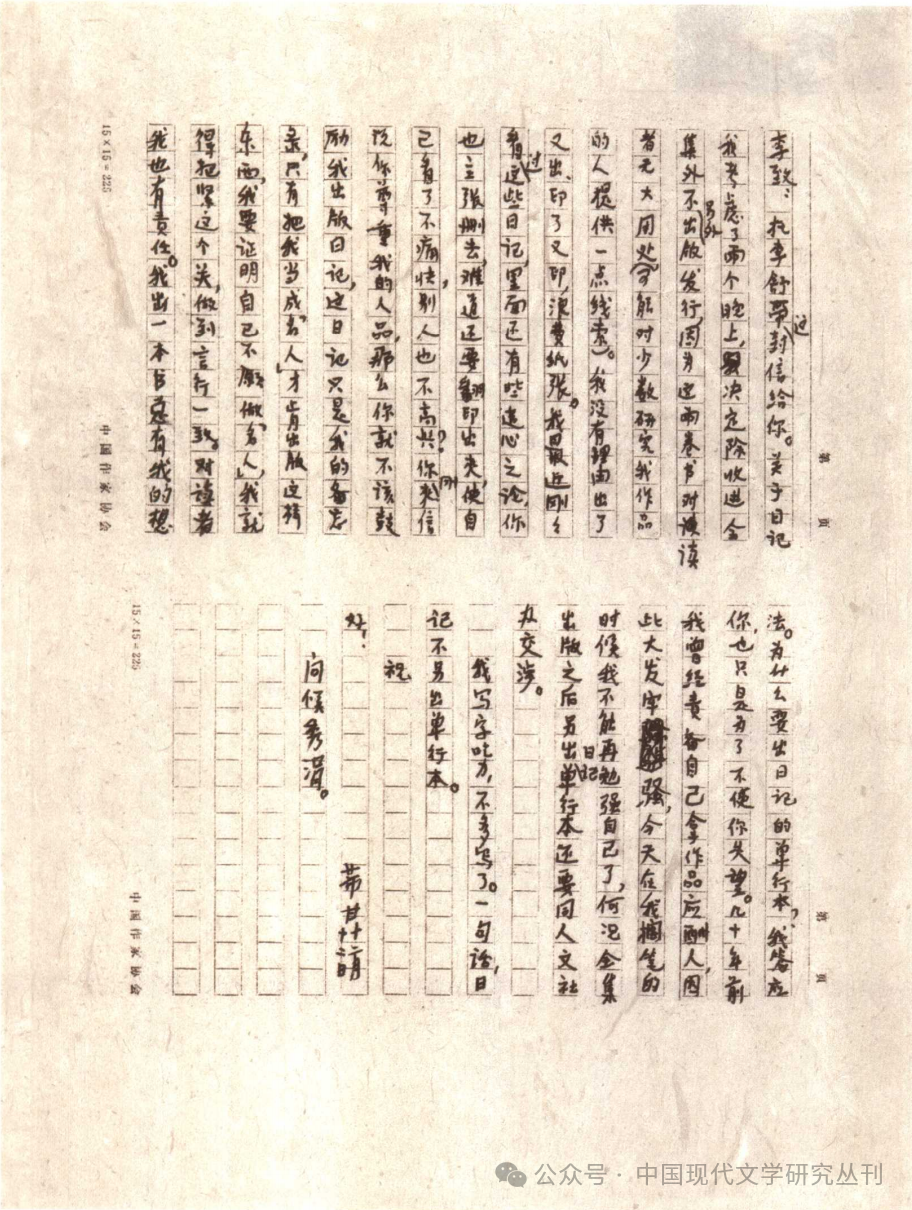 第 页
李致:托李舒带过封信给你。关于日记
我考虑了两个晚上,决定除收进全
集外不另外出版发行,因为这两卷书对读
者无大用处(可能对少数研究我作品
的人提供一点线索)。我没有理由出了
又出、印了又印,浪费纸张。我最近刚刚
看过这些日记,里面还有些违心之论,你
也主张删去,难道还要翻印出来,使自
己看了不痛快,别人也不高兴?你刚来信
说你尊重我的人品,那么你就不该鼓
励我出版日记,这日记只是我的备忘
录,只有把我当成“名人”才肯出版这样
东西,我要证明自己不愿做“名人”,我就
得把紧这个关,做到言行一致。对读者
我也有责任。我出一本书总有我的想
15×15=225
中国作家协会
第 页
法。为什么要出日记的单行本,我答应
你,也只是为了不使你失望。几十年前
我曾经责备自己拿作品应酬人,因
此大发牢骚,今天在我搁笔的
时候我不能再勉强自己了,何况全集
出版之后另出日记单行本还要同人文社
办交涉。
我写字吃力,不多写了。一句话,日
记不另出单行本。
祝
好!
芾甘
问候秀涓。
15×15=225
中国作家协会
公众号·中国现代文学研究丛刊